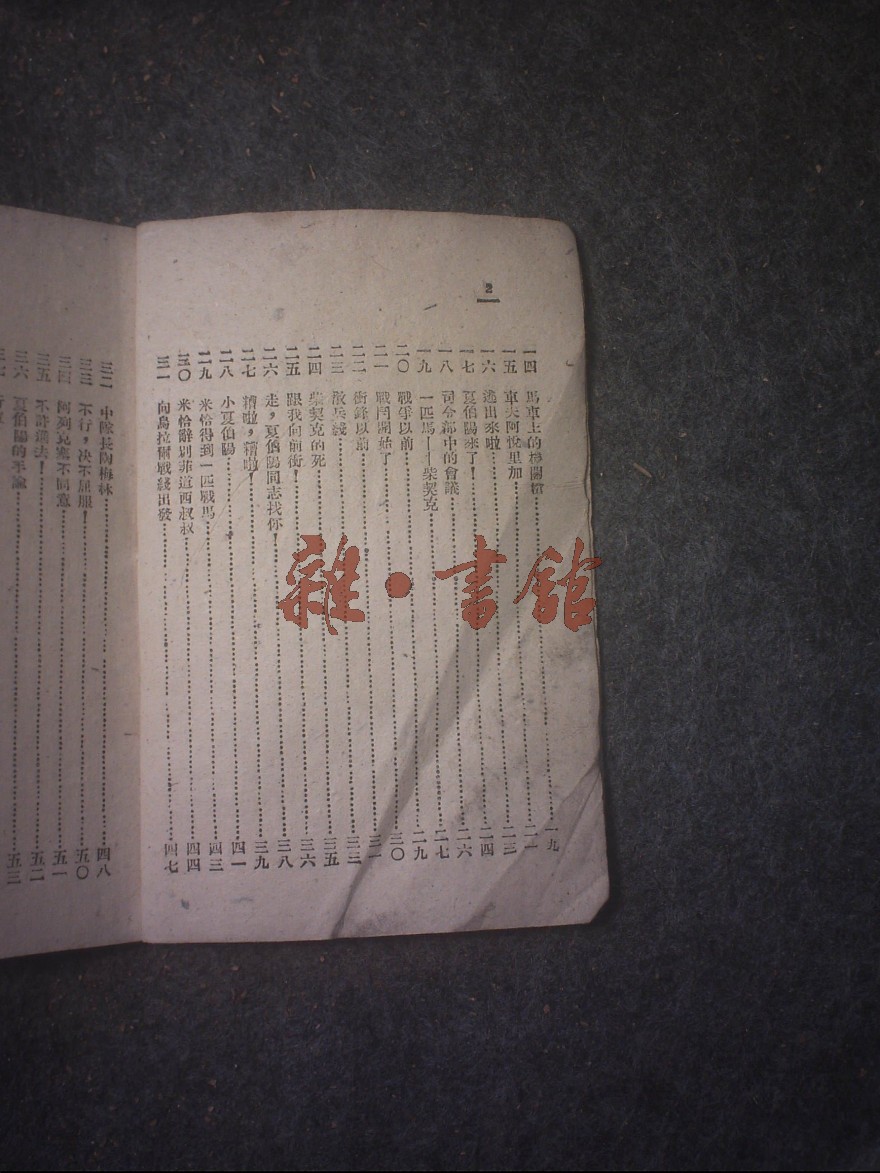 2
一四 馬車上的機關槍 一九
一五 車夫阿悅里加 二一
一六 逃出來啦 二三
一七 夏伯陽來了！ 二四
一八 司令部中的會議 二六
一九 一匹馬——柴契克 二七
二〇 戰爭以前 二九
二一 戰鬥開始了 三〇
二二 衝鋒以前 三一
二三 散兵綫 三三
二四 柴契克的死 三五
二五 跟我向前衝！ 三六
二六 走，夏伯陽同志找你！ 三八
二七 糟啦，糟啦！ 三九
二八 小夏伯陽 四一
二九 米恰得到一匹戰馬 四三
三〇 米恰辭別菲道西叔叔 四四
三一 向烏拉爾戰綫出發 四七
三二 中隊長陶梅林 四八
三三 不行，決不屈服！ 五〇
三四 阿列克塞不同意 五一
三五 不許過去！ 五二
三六 夏伯陽的手諭 五三
三七
雜·書館